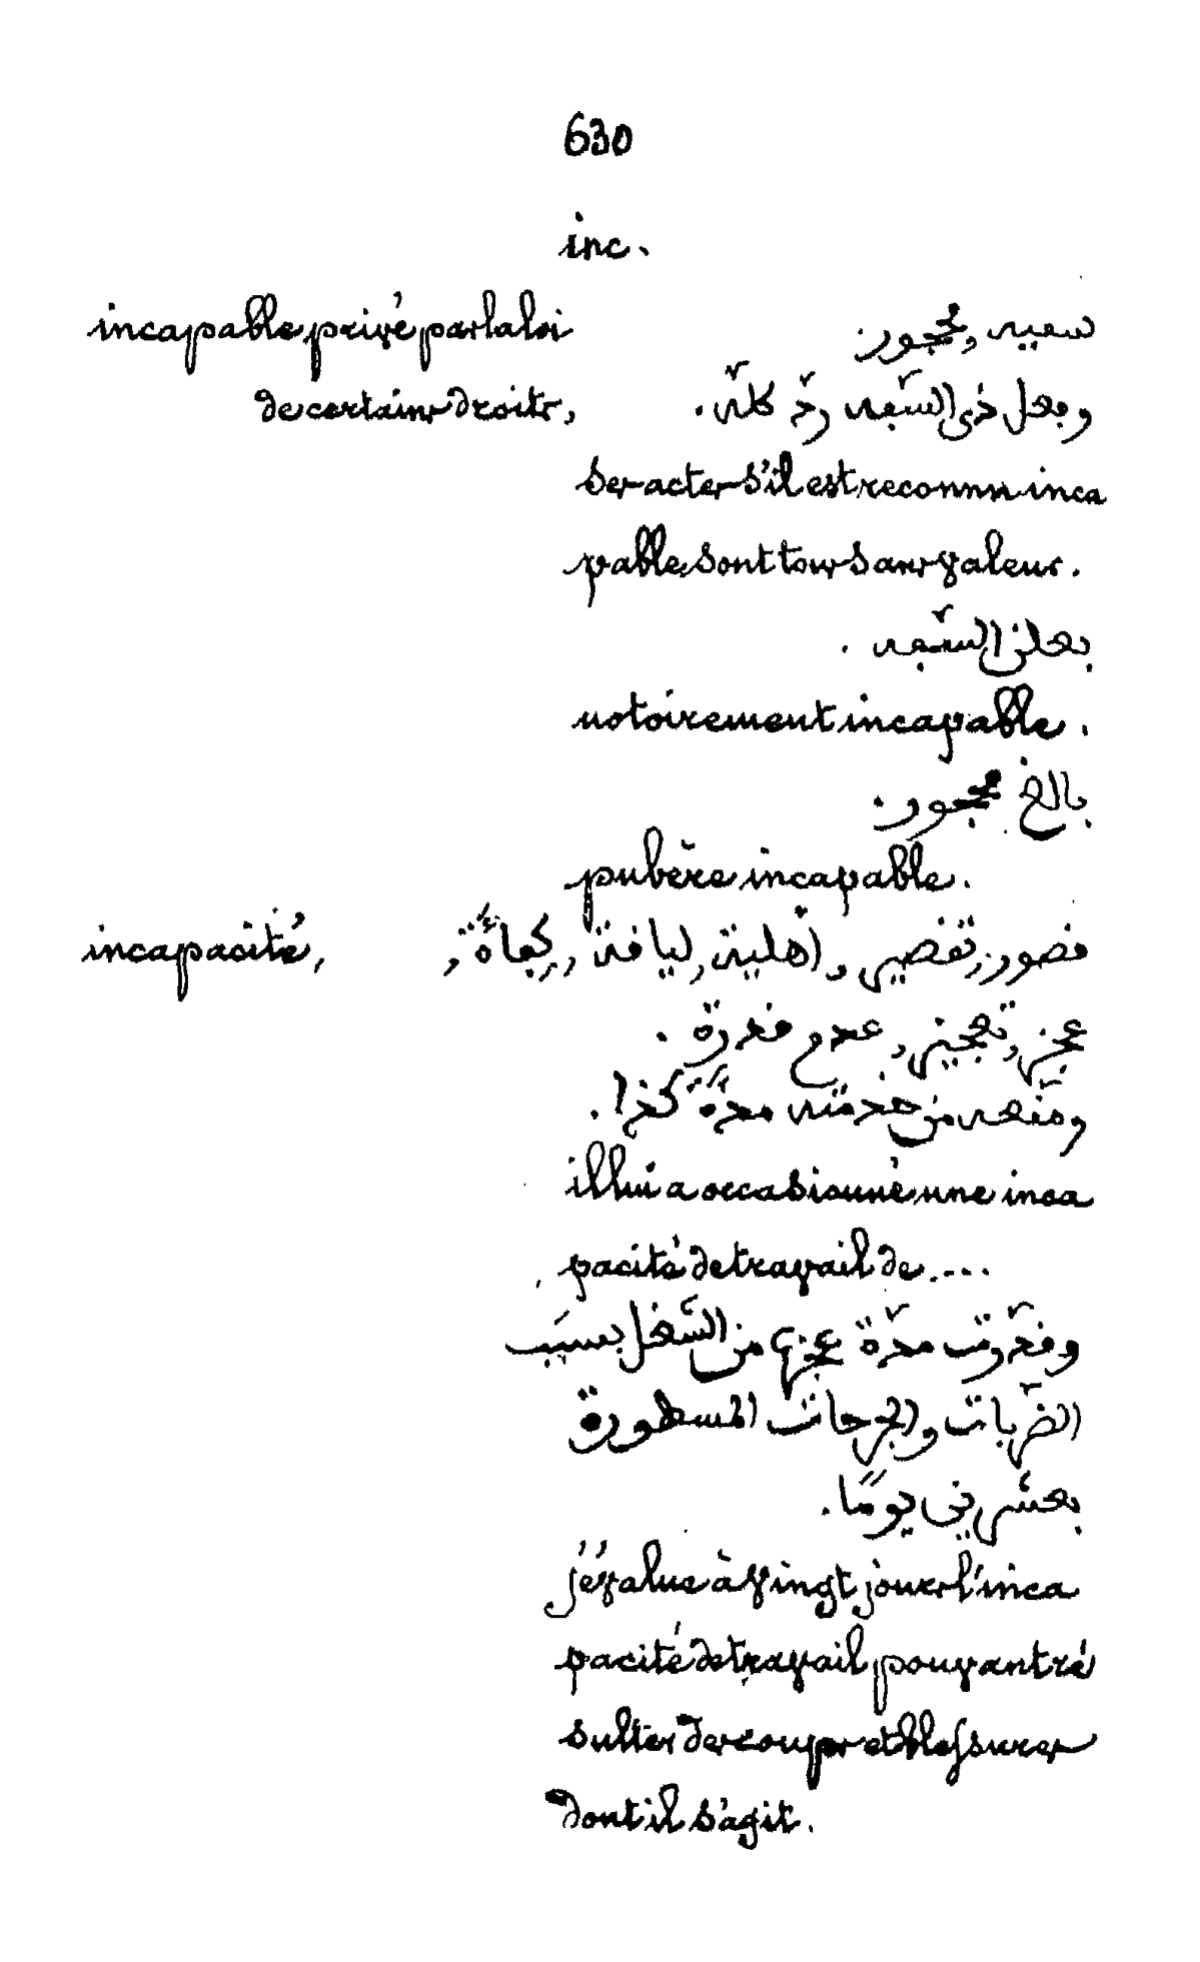 630
inc.
incapable, privé par la loi سفيه, محجور.
de certains droits, وفعل ذى السّفه ردّ كلّه.
Ses actes s'il est reconnu inca
pable, sont tous sans valeur.
بعلن السّفه.
notoirement incapable.
بالغ محجور.
pubère incapable.
incapacité, قصور, تقصير, أهلية, لياقة, كفأةً,
عجز, تعجيز, عدم قدرة.
ومنعه من خدمته مدّةً كذا.
il lui a occasionné une inca
pacité de travail de....
وقدّرت مدّة عجزها من الشّغل بسبب
الضّربات والجرحات المسطورة
بعشرين يومًا.
j'évalue à vingt jours l'inca
pacité de travail pouvant ré
sulter des coups et blessures
dont il s'agit.